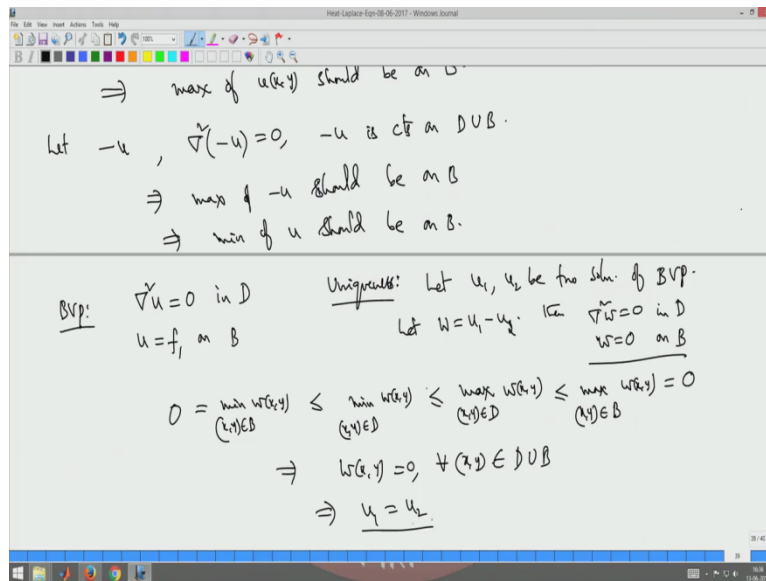 Heat-Laplace-Eqn-08-06-2017 - Windows Journal
File Edit View Insert Actions Tools Help
100%
B I
⇒ max of u(x,y) should be on B.
Let -u , ∇²(-u) = 0, -u is cts on D∪B.
⇒ max of -u should be on B
⇒ min of u should be on B.
BVP: ∇²u = 0 in D
u = f, on B
Uniqueness: Let u₁, u₂ be two soln. of BVP.
Let W = u₁ - u₂. Then ∇²w = 0 in D
w = 0 on B
0 = min w(x,y) ≤ min w(x,y) ≤ max w(x,y) ≤ max w(x,y) = 0
(x,y)∈B (x,y)∈D (x,y)∈D (x,y)∈B
⇒ w(x,y) = 0, ∀ (x,y) ∈ D∪B
⇒ u₁ = u₂
39 / 40
39
16:36